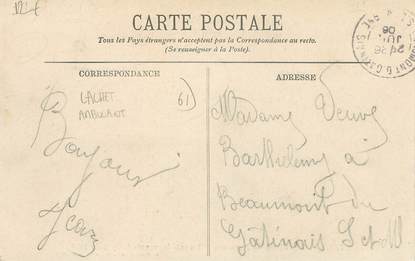 CARTE POSTALE
Tous les Pays étrangers n'acceptent pas la Correspondance au recto.
(Se renseigner à la Poste).
CORRESPONDANCE
ADRESSE
CACHET
AMBULANT
61
Bonjour
Madame Veuve
Barthelemy à
Beaumont du
Gâtinois S et M